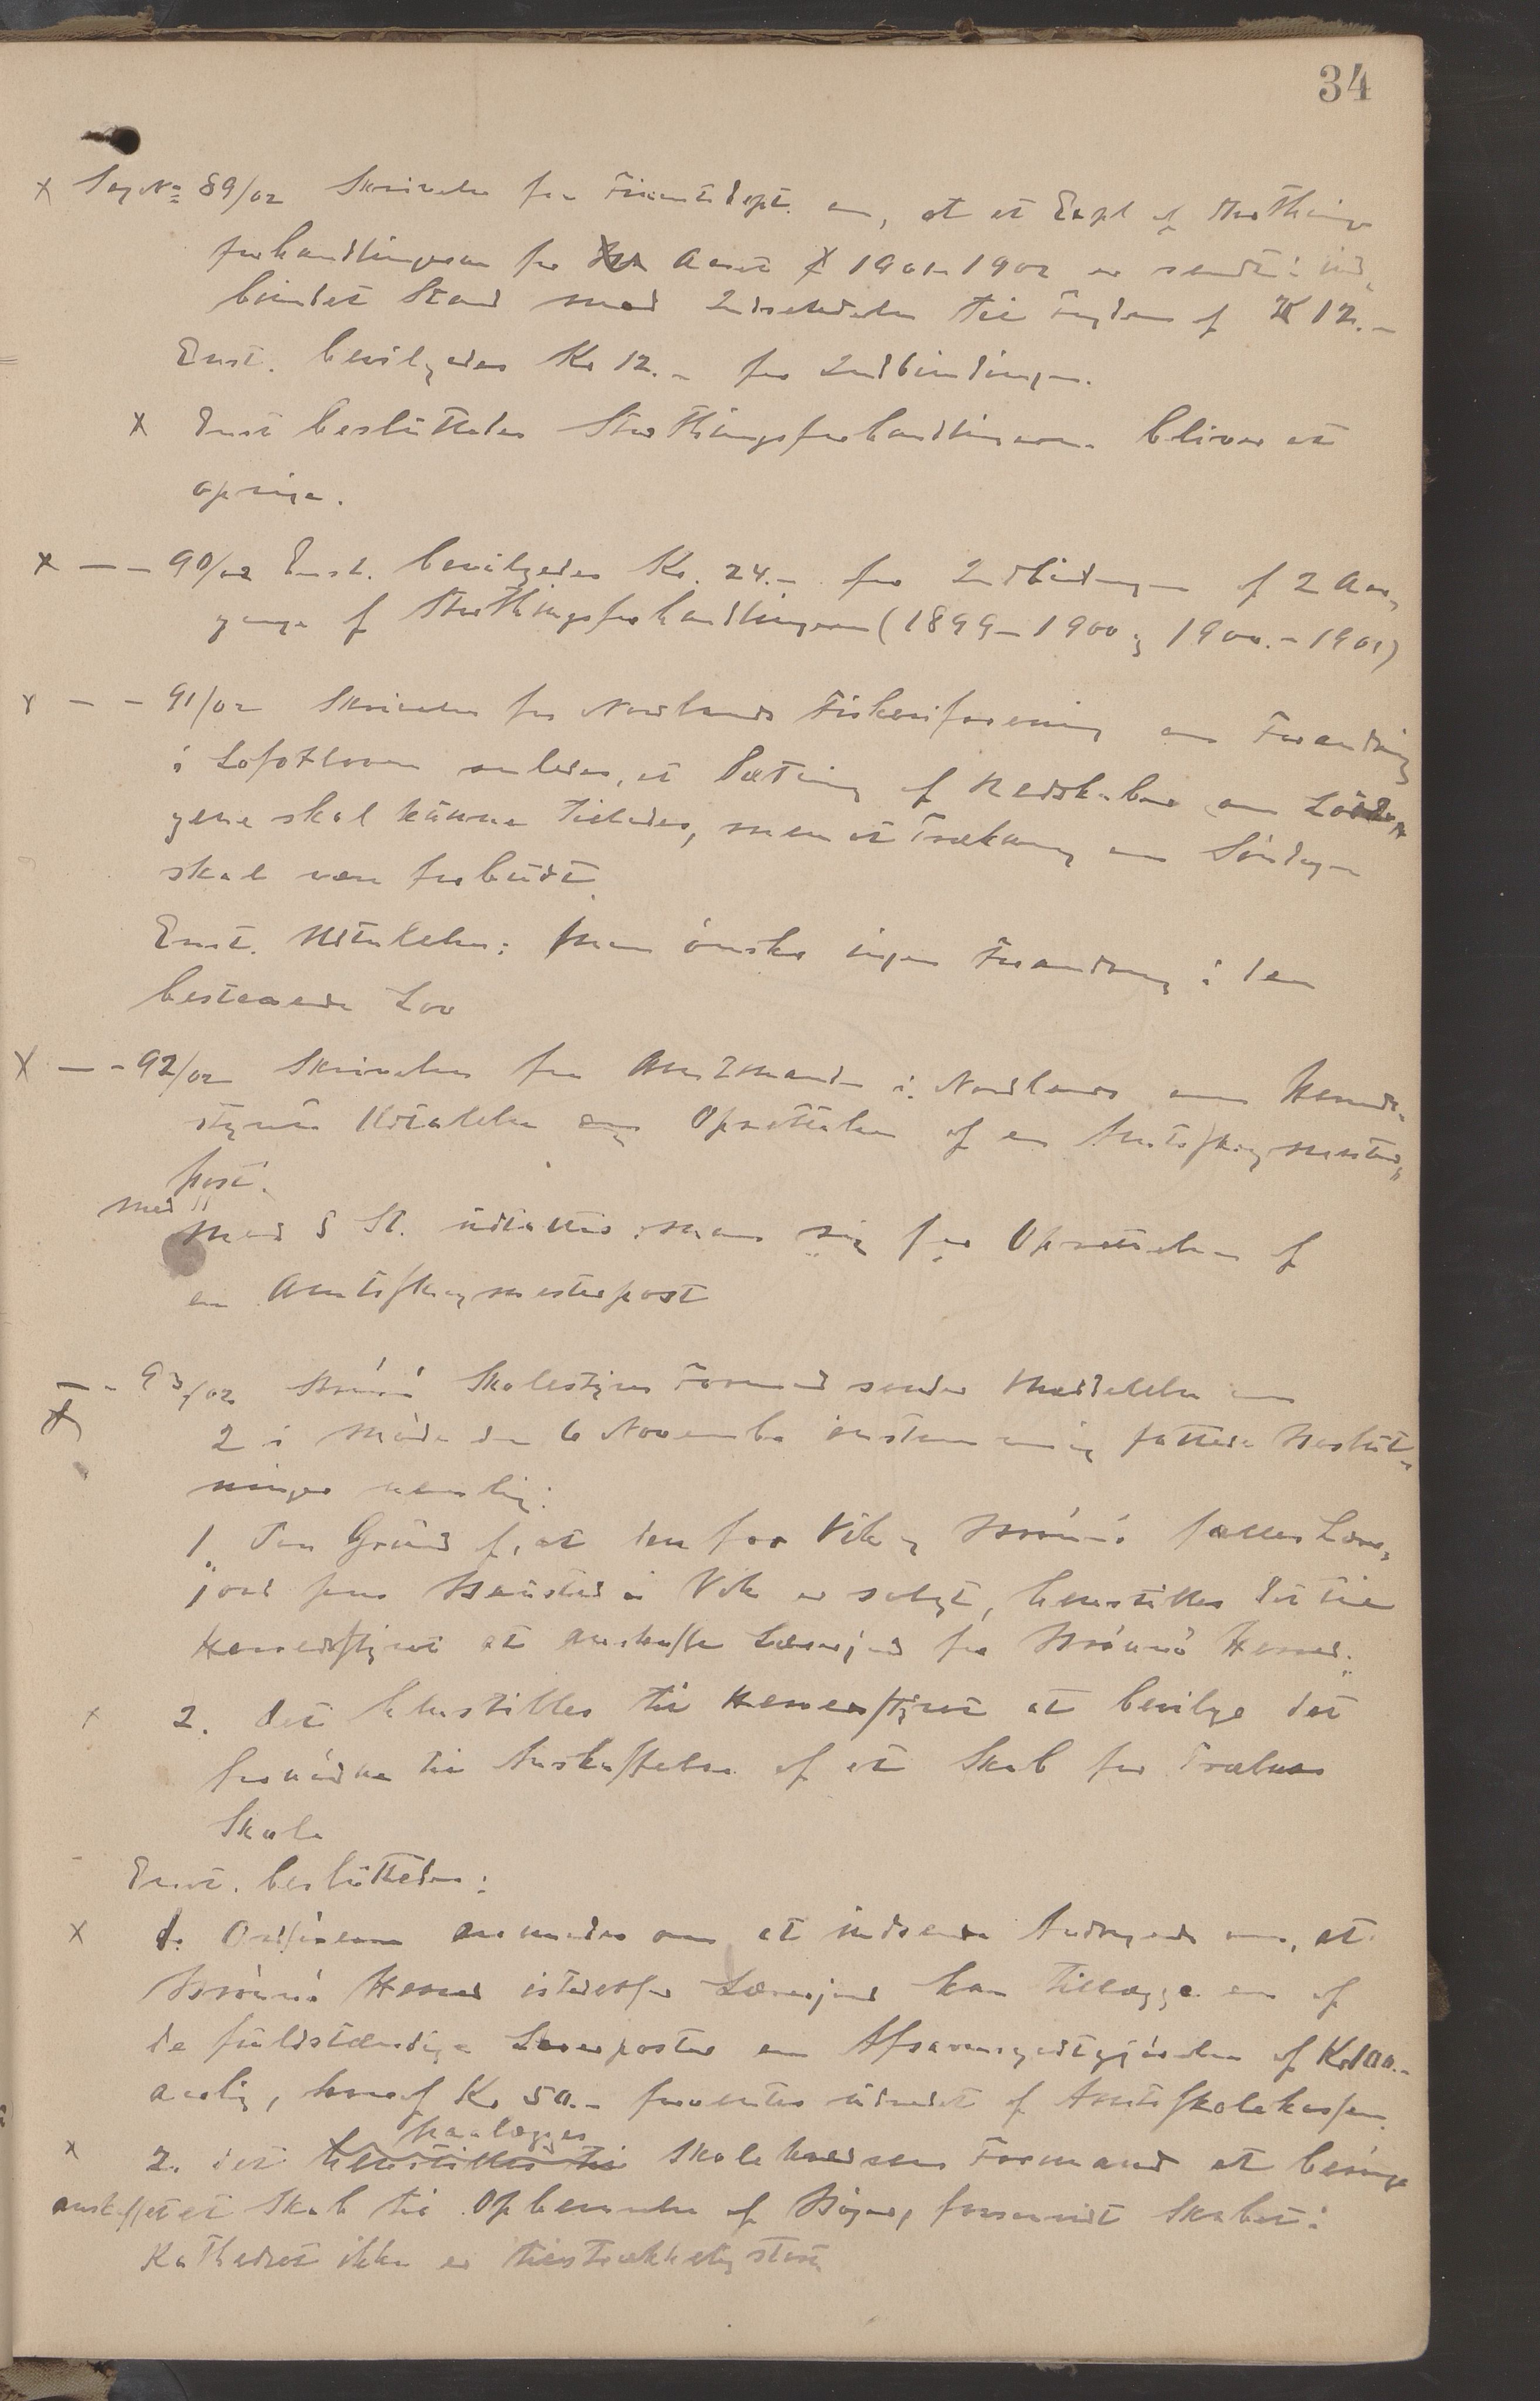 34
x Sag No 89/02 Skrivelse fra Finantsdept. om, at et Expl af Storthings
forhandlingerne for Aaret 1901-1902 er sendt i ind„
bundet Stand med Udsendelse til af K 12.-
Enst. bevilgedes Kr 12.- for Indbindingen.
x Enst besluttedes Storthingsforhandlingerne bliver at
opsige.
x — – 90/02 Enst. bevilgedes Kr. 24.- for Indbindingen af 2 Aar„
gange af Storthingsforhandlingerne (1899-1900 og 1900.-1901)
x – – 91/02 Skrivelse fra Nordlands Fiskeriforening om Forandring
i Lofotloven saaledes, at Sætning af Redskaber om Lörda„
gene skal kunne tillades, men at Trækning om Söndagen
skal være forbudt.
Enst. Udtalelse: Man önsker ingen Forandring i den
bestaaende Lov
X — - 92/02 Skrivelse fra Amtmanden i Nordlands om Herreds-
styrets Udtalelse ang Oprettelse af en Amtsskogmester„
post.
med
Mod 5 St. udtalte man sig for Oprettelsen af
en Amtsskogmesterpost
— - 93/02 Brönnö Skolestyres Formand sender Meddelelse om
2 i Möde den 6 November enstemmig fattede Beslut„
ninger nemlig:
1. „Paa Grund af, at den for Vik og Brönnö fælles Lærer„
jord paa i Vik er solgt, henstilles det til
Herredsstyret at anskaffe Lærerjord for Brönnö Herred.„
x 2. Det henstilles til Herredsstyret at bevilge det
fornödne til Anskaffelse af et Skab for Trælnes
Skole
Enst. besluttedes:
x 1. Ordföreren anmodes om at indsende Andragende om, at
Brönnö Herred istedetfor Lærerjord kan tillægge en af
de fuldstændige Lærerposter en Afsavnsgodtgjörelse af Kr 100.-
aarlig, hvoraf Kr 50.- forventes udredet af Amtsskolekassen.
paalægges
x 2. Det henstilles til Skolekredsens Formand at besörge
anskaffet et Skab til Opbevarelse af Böger, forsaavidt Skabet i
Kathedret ikke er tilstrækkelig stort.